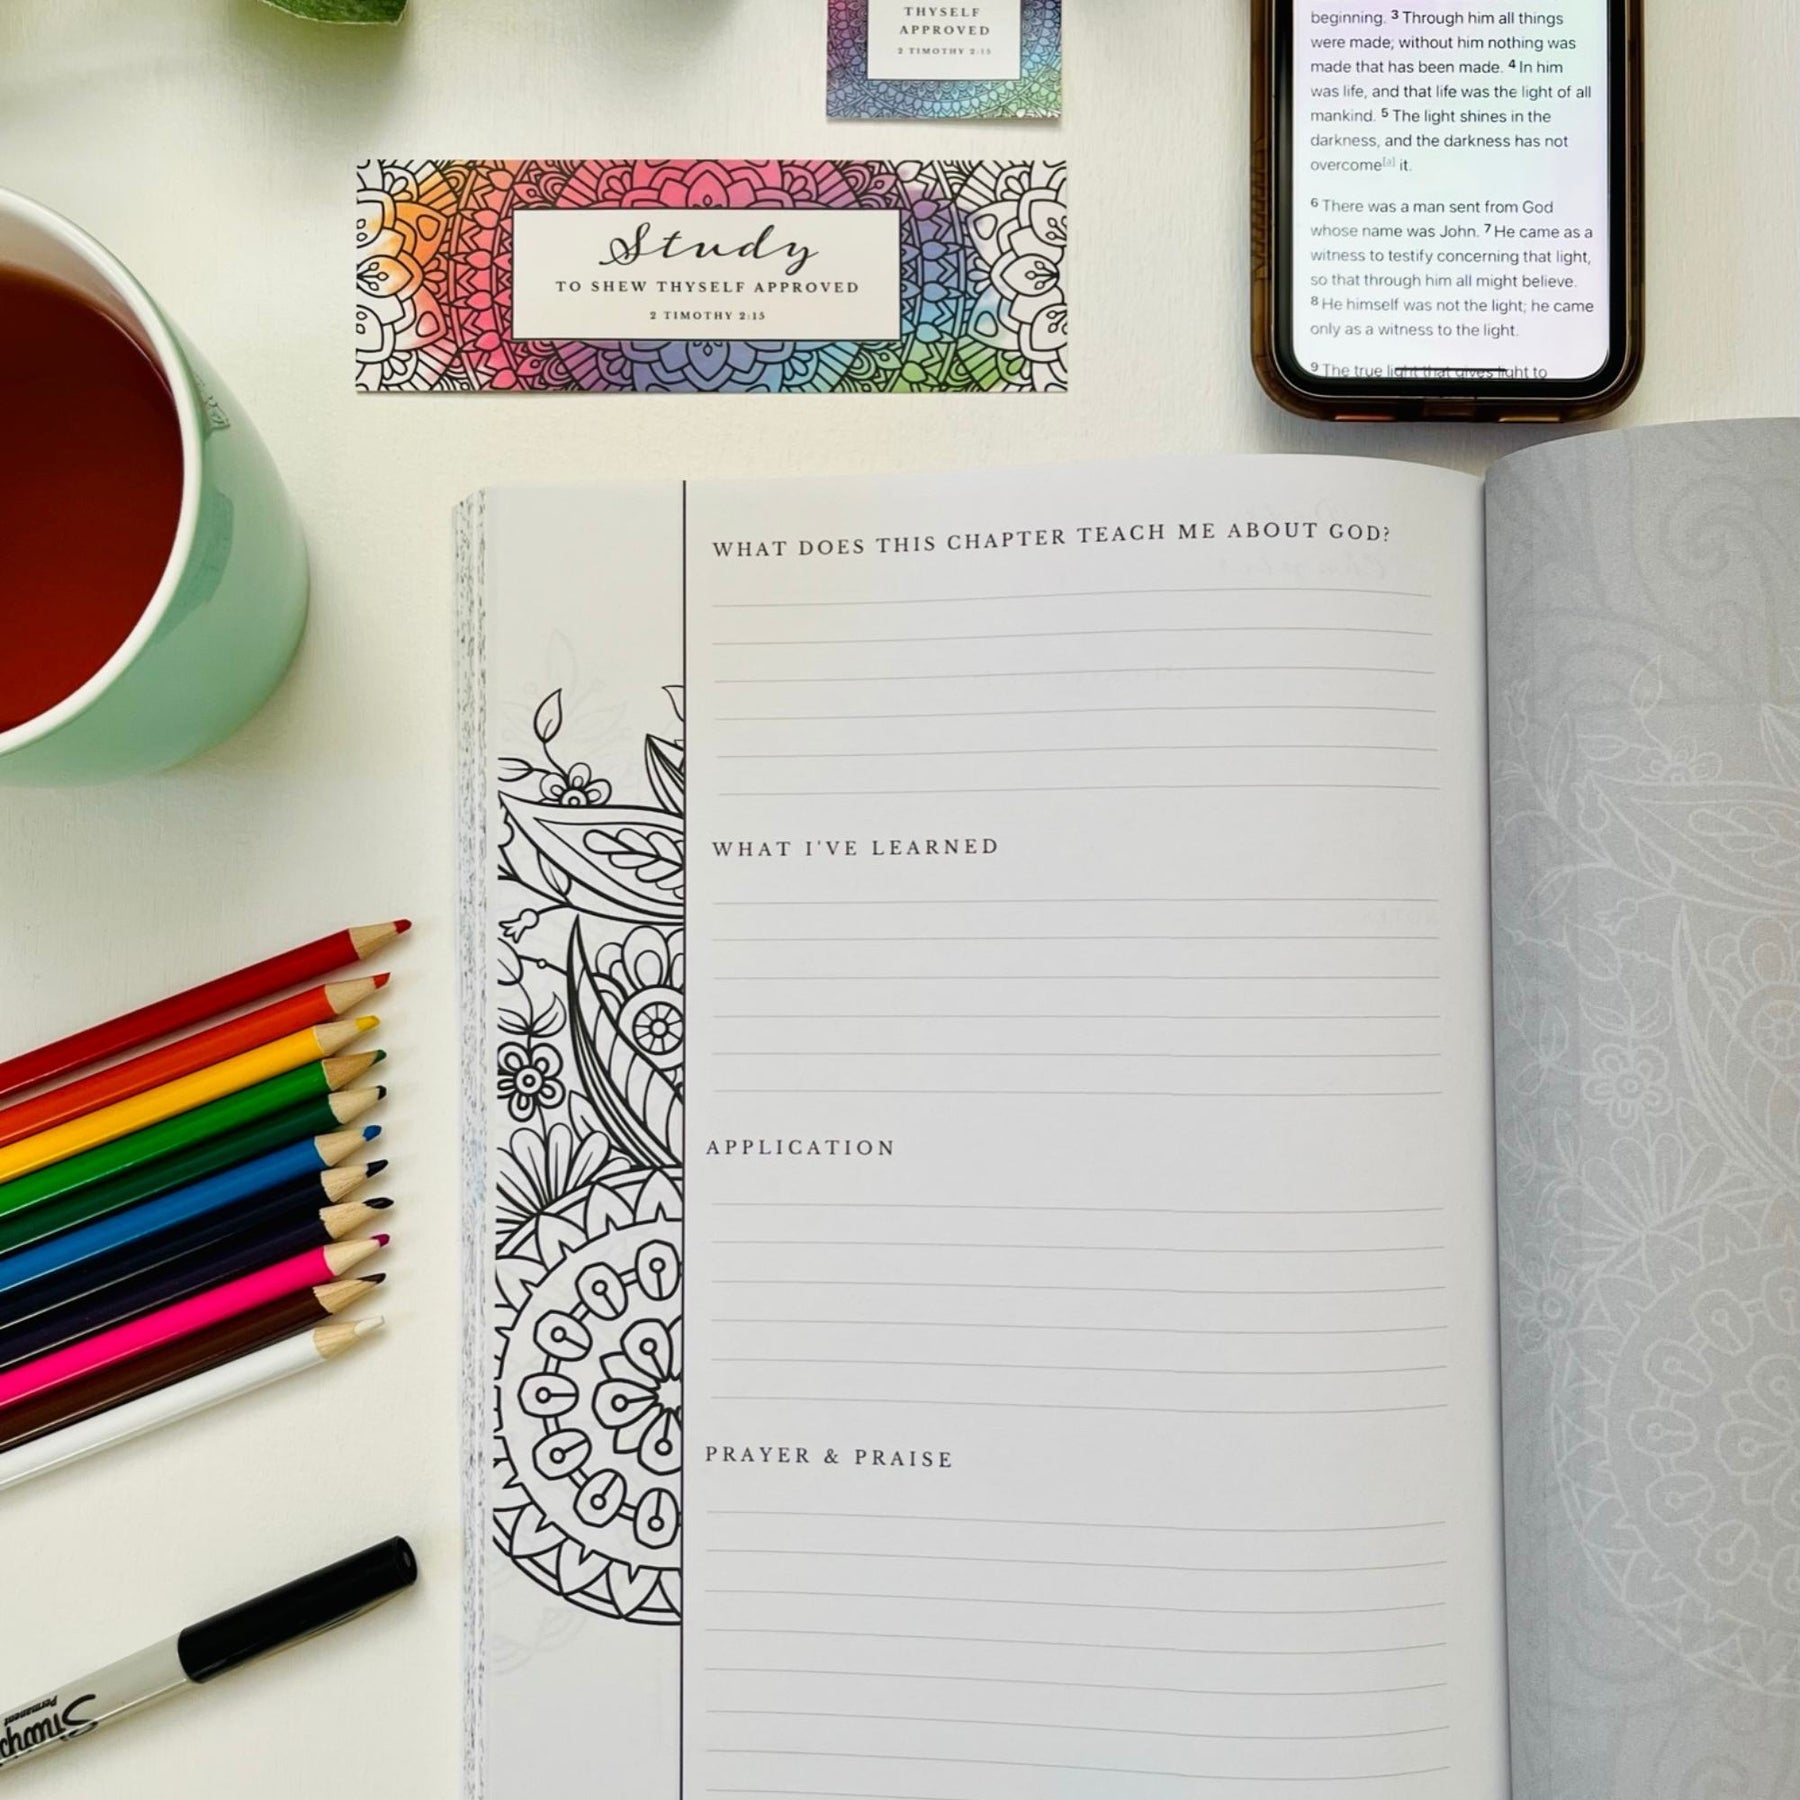 THYSELF
APPROVED
2 TIMOTHY 2:15
beginning. 3 Through him all things
were made; without him nothing was
made that has been made. 4 In him
was life, and that life was the light of all
mankind. 5 The light shines in the
darkness, and the darkness has not
overcome[a] it.
6 There was a man sent from God
whose name was John. 7 He came as a
witness to testify concerning that light,
so that through him all might believe.
8 He himself was not the light; he came
only as a witness to the light.
9 The true light that gives light to
Study
TO SHEW THYSELF APPROVED
2 TIMOTHY 2:15
WHAT DOES THIS CHAPTER TEACH ME ABOUT GOD?
WHAT I'VE LEARNED
APPLICATION
PRAYER & PRAISE
Permanent